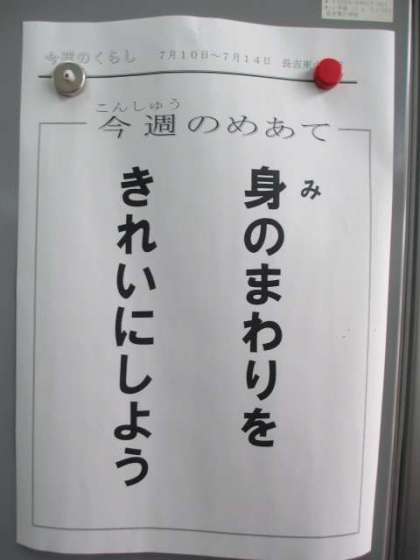 今週のくらし 7月10日～7月14日 長吉東
こんしゅう
今週のめあて
み
身のまわりを
きれいにしよう